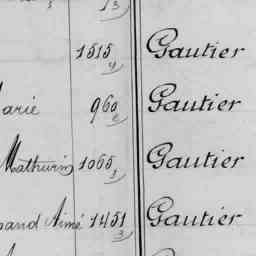 13
1515 4 Gautier
arie 960 Gautier
Mathurin 1065 3 Gautier
and Aimé 1451 3 Gautier